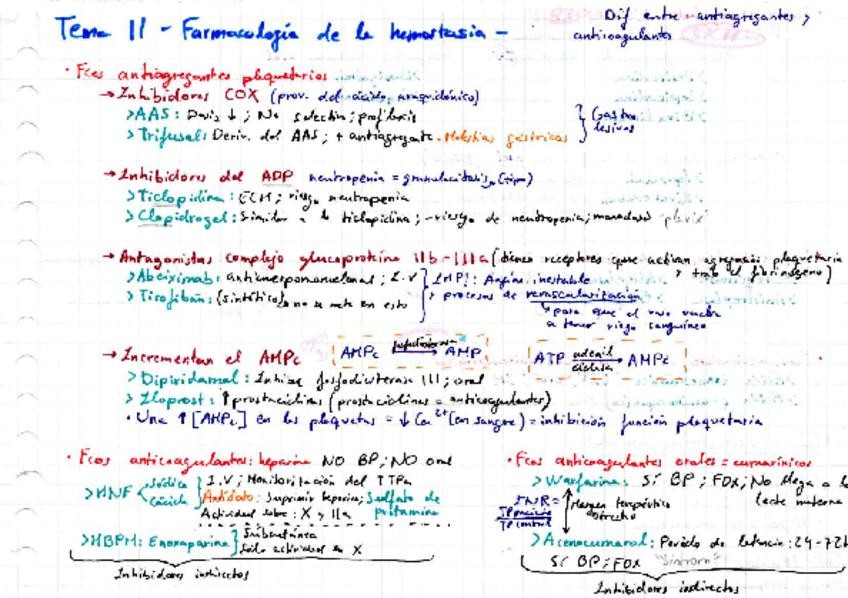 Tema 11 - Farmacología de la hemostasia -
Dif entre antiagregantes y
anticoagulantes
· Fcos antiagregantes plaquetarios
→ Inhibidores COX (prov. del ácido araquidónico)
> AAS: Dosis ↓; No selectivo; profilaxis
> Trifusal: Deriv. del AAS; + antiagregante. Molestias gástricas
} Gastro
lesivos
→ Inhibidores del ADP neutropenia = granulocitosis (tipo)
> Ticlopidina: ECM; riesgo neutropenia
> Clopidrogel: Similar a la ticlopidina; - riesgo de neutropenia;
→ Antagonistas complejo glucoproteína IIb-IIIa (tienen receptores que activan agregación plaquetaria
> Abciximab: ; I.V
> Tirofiban: (sintético) no se mete en esto
IMP!: Angina inestable
procesos de revascularización
↳ para que el vaso vuelva
a tener riego sanguíneo
→ Incrementan el AMPc
AMPc fosfodiesterasa → AMP
ATP adenil ciclasa → AMPc
> Dipiridamol: Inhibe fosfodiesterasa III; oral
> Iloprost: ↑ prostaciclinas (prostaciclinas = anticoagulantes)
· Una ↑ [AMPc] en las plaquetas = ↓ Ca²⁺ (en sangre) = inhibición función plaquetaria
· Fcos anticoagulantes: heparina NO BP; NO oral
> HNF
sódica
cálcica
I.V; Monitorización del TTPa
Antídoto: Suprimir heparina; Sulfato de
protamina
Actividad sobre: X y IIa
> HBPM: Enoxaparina
Subcutánea
Solo actividad en X
Inhibidores indirectos
· Fcos anticoagulantes orales = cumarínicos
> Warfarina: SÍ BP; FDx; No llega a la
leche materna
INR =
TP paciente
TP control
Margen terapéutico
estrecho
> Acenocumarol: Periodo de latencia: 24-72h
SÍ BP; FDx "Sintrom"
Inhibidores indirectos